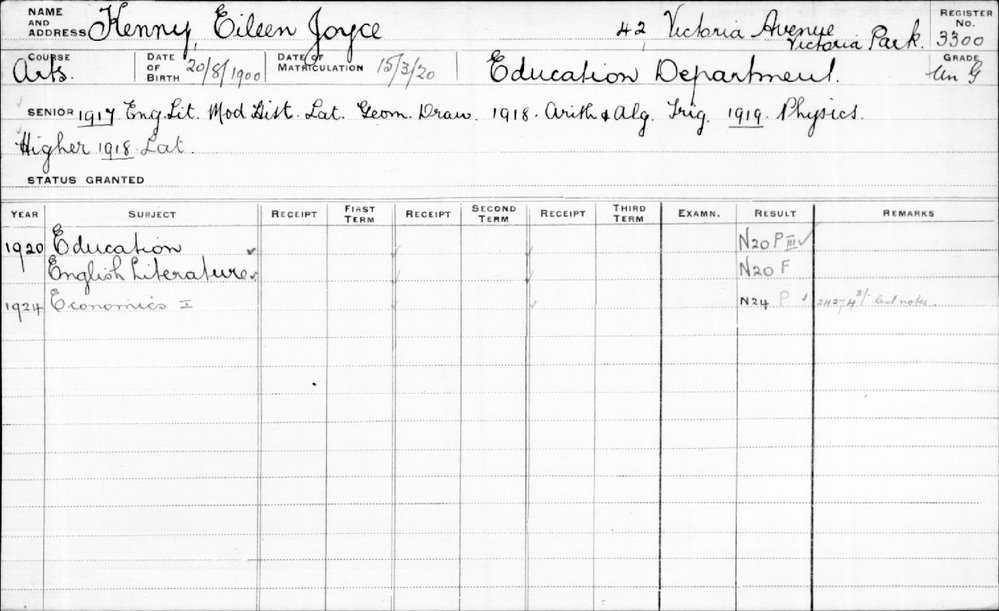 NAME AND ADDRESS Kenny, Eileen Joyce 42 Victoria Avenue Victoria Park. REGISTER No. 3300
COURSE Arts. DATE OF BIRTH 20/8/1900 DATE OF MATRICULATION 15/3/20 Education Department. GRADE Un G
SENIOR 1917 Eng. Lit. Mod Hist. Lat. Geom. Draw. 1918. Arith & Alg. Trig. 1919. Physics.
Higher 1918. Lat.
STATUS GRANTED
YEAR SUBJECT RECEIPT FIRST TERM RECEIPT SECOND TERM RECEIPT THIRD TERM EXAMN. RESULT REMARKS
1920 Education ✓ ✓ ✓ N20 P III ✓
English Literature ✓ ✓ ✓ N20 F
1924 Economics I ✓ ✓ N24 P